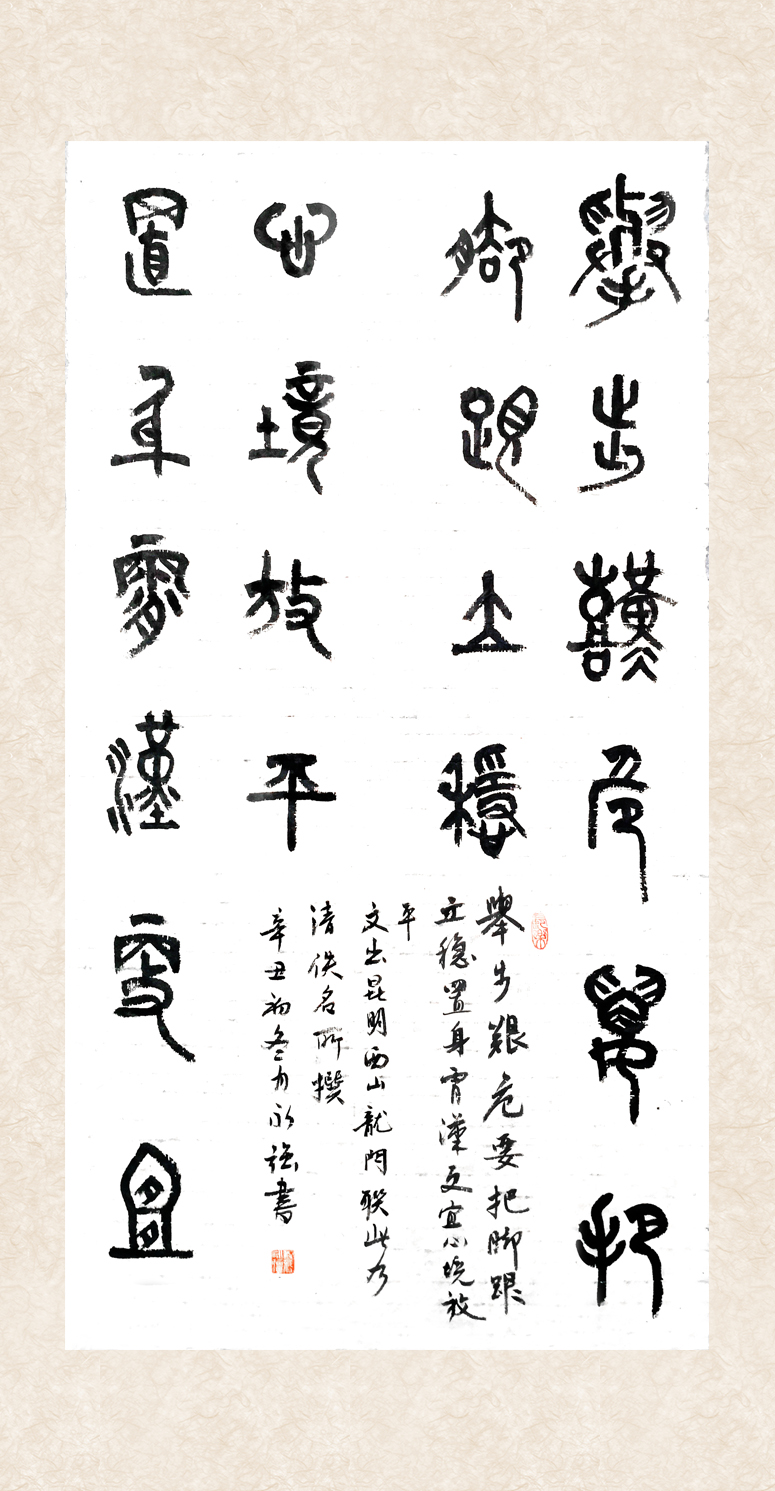 舉步艱危要把
脚跟立穩
心境放平
置身霄漢更宜
舉步艱危要把脚跟
立穩置身霄漢更宜心境放
平
文出昆明西山龍門聯此乃
清佚名所撰
辛丑初冬月永強書